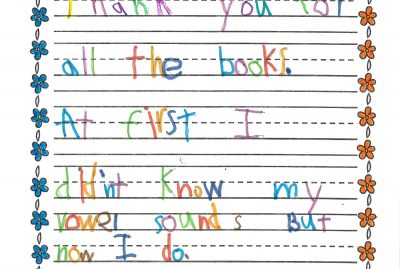 Thank you for
all the books.
At first I
didn't know my
vowel sounds But
now I do.